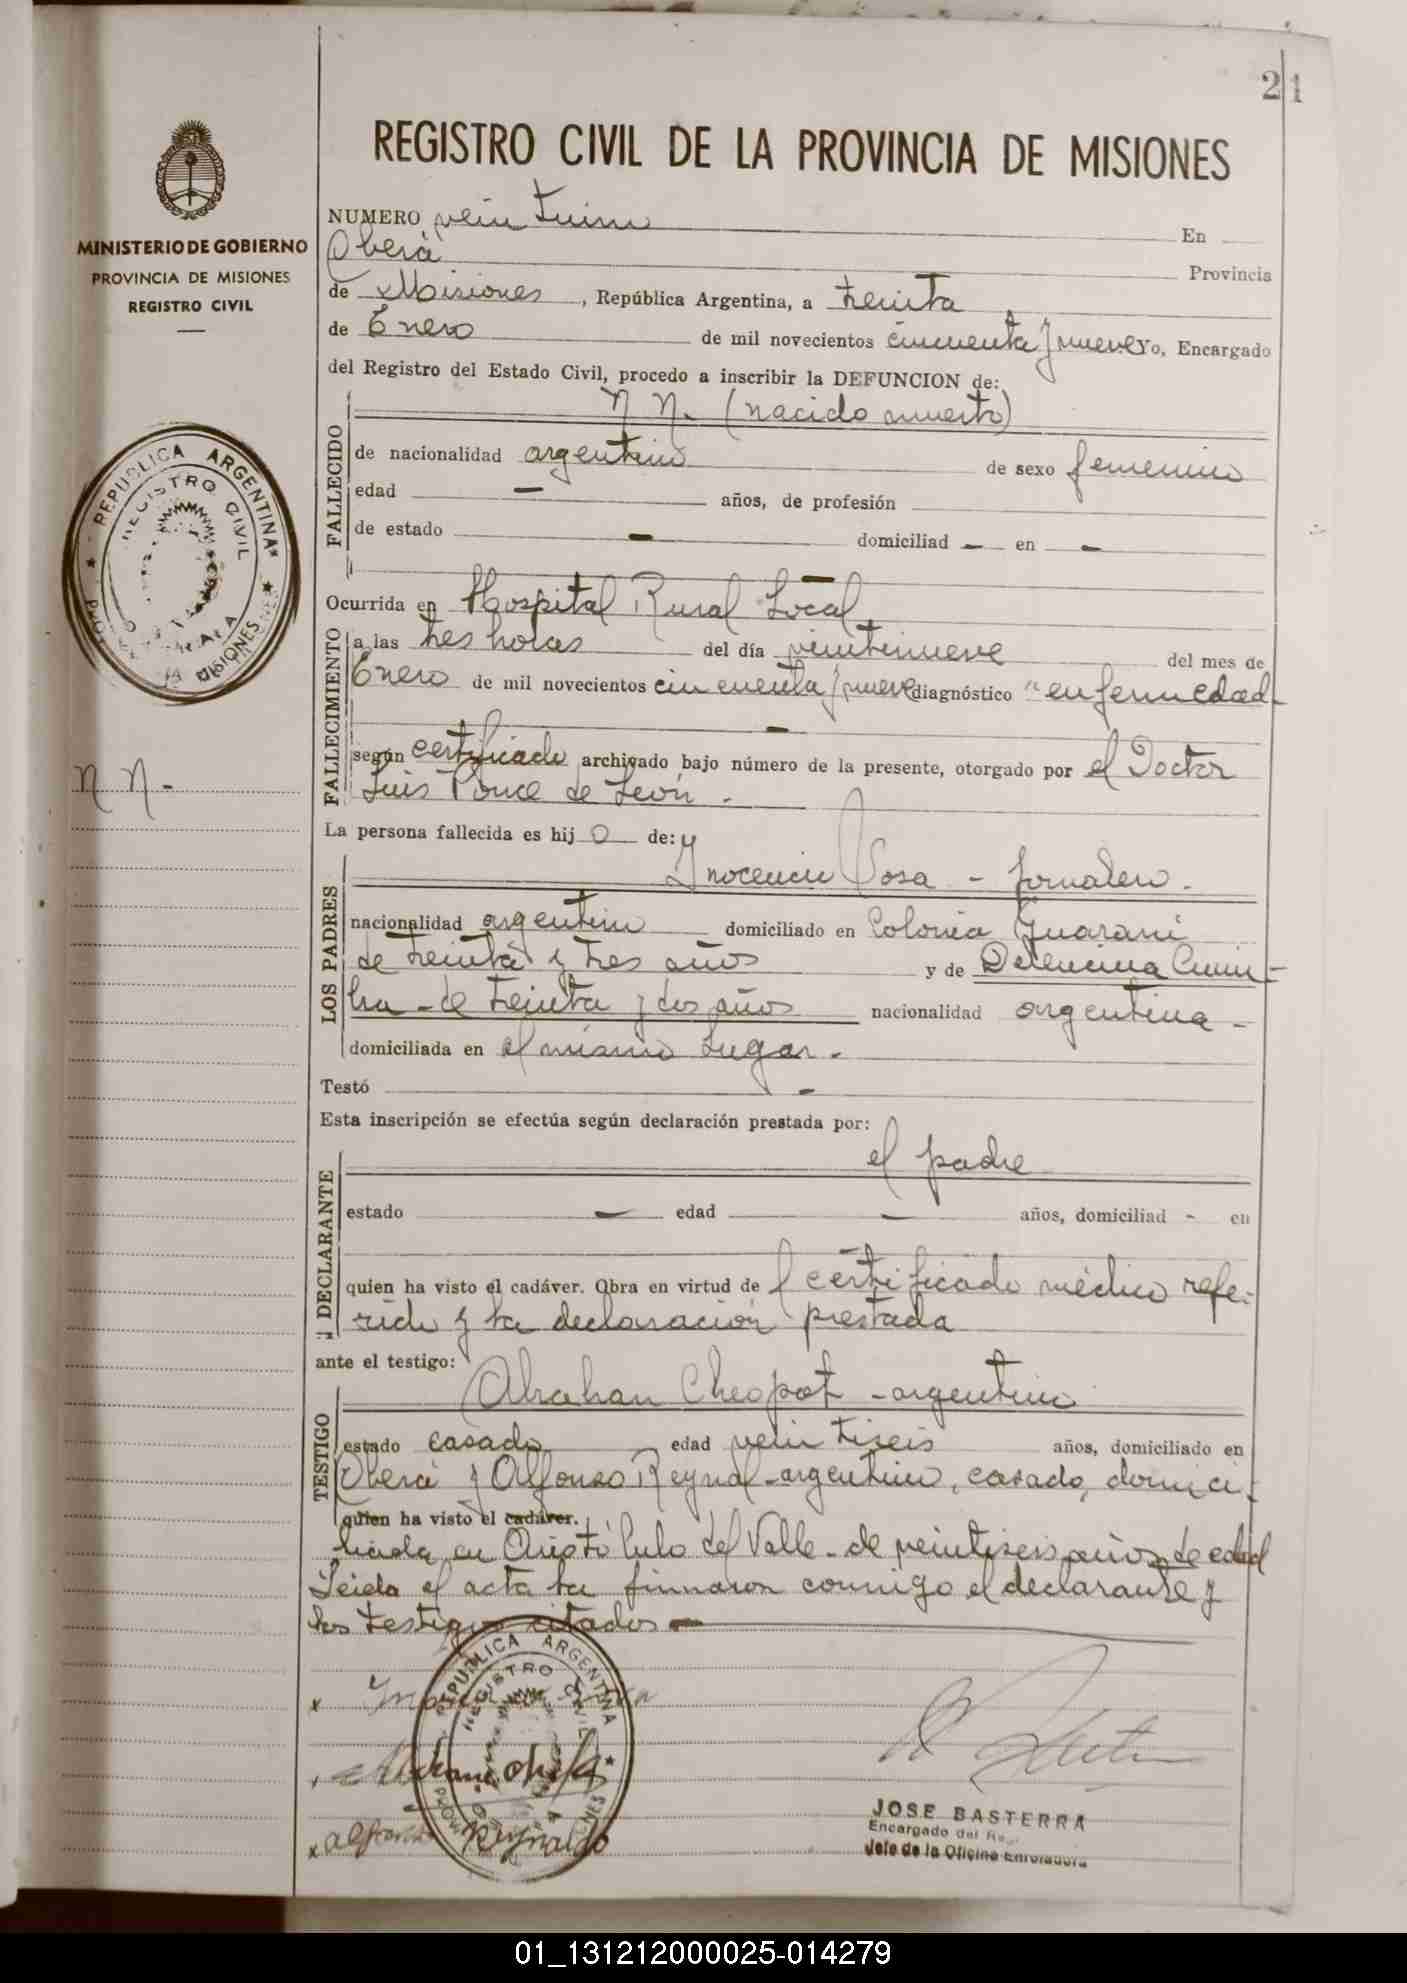 21
REGISTRO CIVIL DE LA PROVINCIA DE MISIONES
MINISTERIO DE GOBIERNO
PROVINCIA DE MISIONES
REGISTRO CIVIL
REPUBLICA ARGENTINA
REGISTRO CIVIL
MISIONES
N N -
NUMERO veintiuno En
Oberá Provincia
de Misiones, República Argentina, a treinta
de Enero de mil novecientos cincuenta y nueve Yo, Encargado
del Registro del Estado Civil, procedo a inscribir la DEFUNCION de:
N N. (nacido muerto)
FALLECIDO
de nacionalidad argentino de sexo femenino
edad — años, de profesión
de estado — domiciliad — en —
Ocurrida en Hospital Rural Local
FALLECIMIENTO
a las tres horas del día veintinueve del mes de
Enero de mil novecientos cincuenta y nueve diagnóstico "enfermedad-
según certificado archivado bajo número de la presente, otorgado por el Doctor
Luis Ponce de León.
La persona fallecida es hij o de:
LOS PADRES
Sosa - Jornalero.
nacionalidad argentino domiciliado en Colonia Guaraní
de treinta y tres años y de
de treinta y dos años nacionalidad argentina -
domiciliada en el mismo lugar.
Testó -
Esta inscripción se efectúa según declaración prestada por:
el padre
DECLARANTE
estado — edad — años, domiciliad - en
quien ha visto el cadáver. Obra en virtud de l certificado médico refe-
rido y la declaración prestada
ante el testigo:
Abrahan - argentino
TESTIGO
estado casado edad veintiseis años, domiciliado en
Oberá y Alfonso - argentino, casado, domici-
quien ha visto el cadáver.
liado en Aristóbulo del Valle - de veintiseis años de edad
Leida el acta la firmaron conmigo el declarante y
los testigos citados —
REPUBLICA ARGENTINA
REGISTRO CIVIL
Reynaldo
JOSE BASTERRA
Encargado del
Jefe de la Oficina Enroladora
01_131212000025-014279